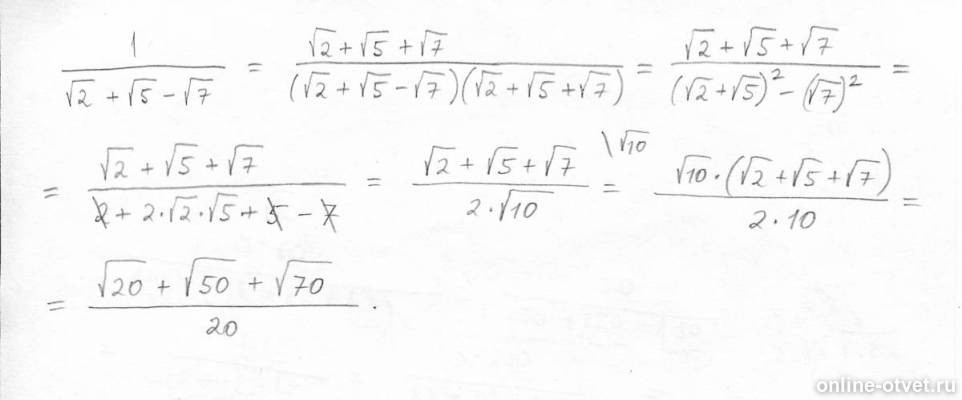 1/(√2 + √5 − √7) = (√2 + √5 + √7)/((√2 + √5 − √7)(√2 + √5 + √7)) = (√2 + √5 + √7)/((√2 + √5)² − (√7)²) =
= (√2 + √5 + √7)/(2 + 2·√2·√5 + 5 − 7) = (√2 + √5 + √7)/(2·√10) \√10 = (√10·(√2 + √5 + √7))/(2·10) =
= (√20 + √50 + √70)/20 .
online-otvet.ru